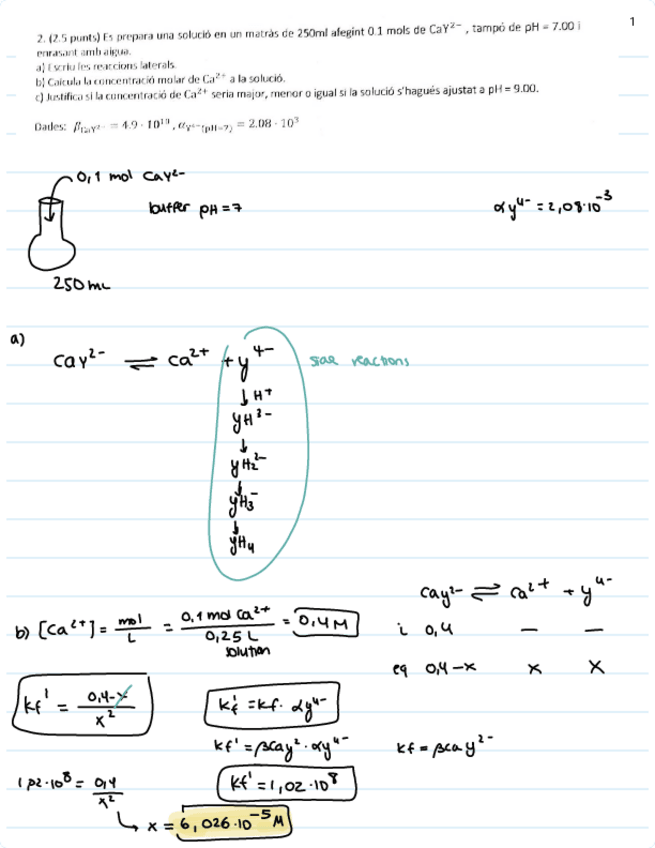 1
2. (2.5 punts) Es prepara una solució en un matràs de 250ml afegint 0.1 mols de CaY²⁻, tampó de pH = 7.00 i
enrasant amb aigua.
a) Escriu les reaccions laterals.
b) Calcula la concentració molar de Ca²⁺ a la solució.
c) Justifica si la concentració de Ca²⁺ seria major, menor o igual si la solució s'hagués ajustat a pH = 9.00.
Dades:
= 2.08 · 10³
0,1 mol CaY²⁻
buffer pH = 7
αy⁴⁻ = 2,08·10⁻³
250 mL
a)
CaY²⁻ ⇌ Ca²⁺ + Y⁴⁻
reactions
↓ H⁺
YH³⁻
↓
YH₂²⁻
↓
YH₃⁻
↓
YH₄
CaY²⁻ ⇌ Ca²⁺ + Y⁴⁻
b) [Ca²⁺] = mol/L = 0,1 mol Ca²⁺ / 0,25 L solution = 0,4 M
i 0,4 — —
eq 0,4-x x x
Kf' = 0,4-x / x²
Kf' = Kf · αy⁴⁻
Kf' = βCaY²⁻ · αy⁴⁻
Kf = βCaY²⁻
1,02·10⁸ = 0,4 / x²
Kf' = 1,02·10⁸
x = 6,026·10⁻⁵ M